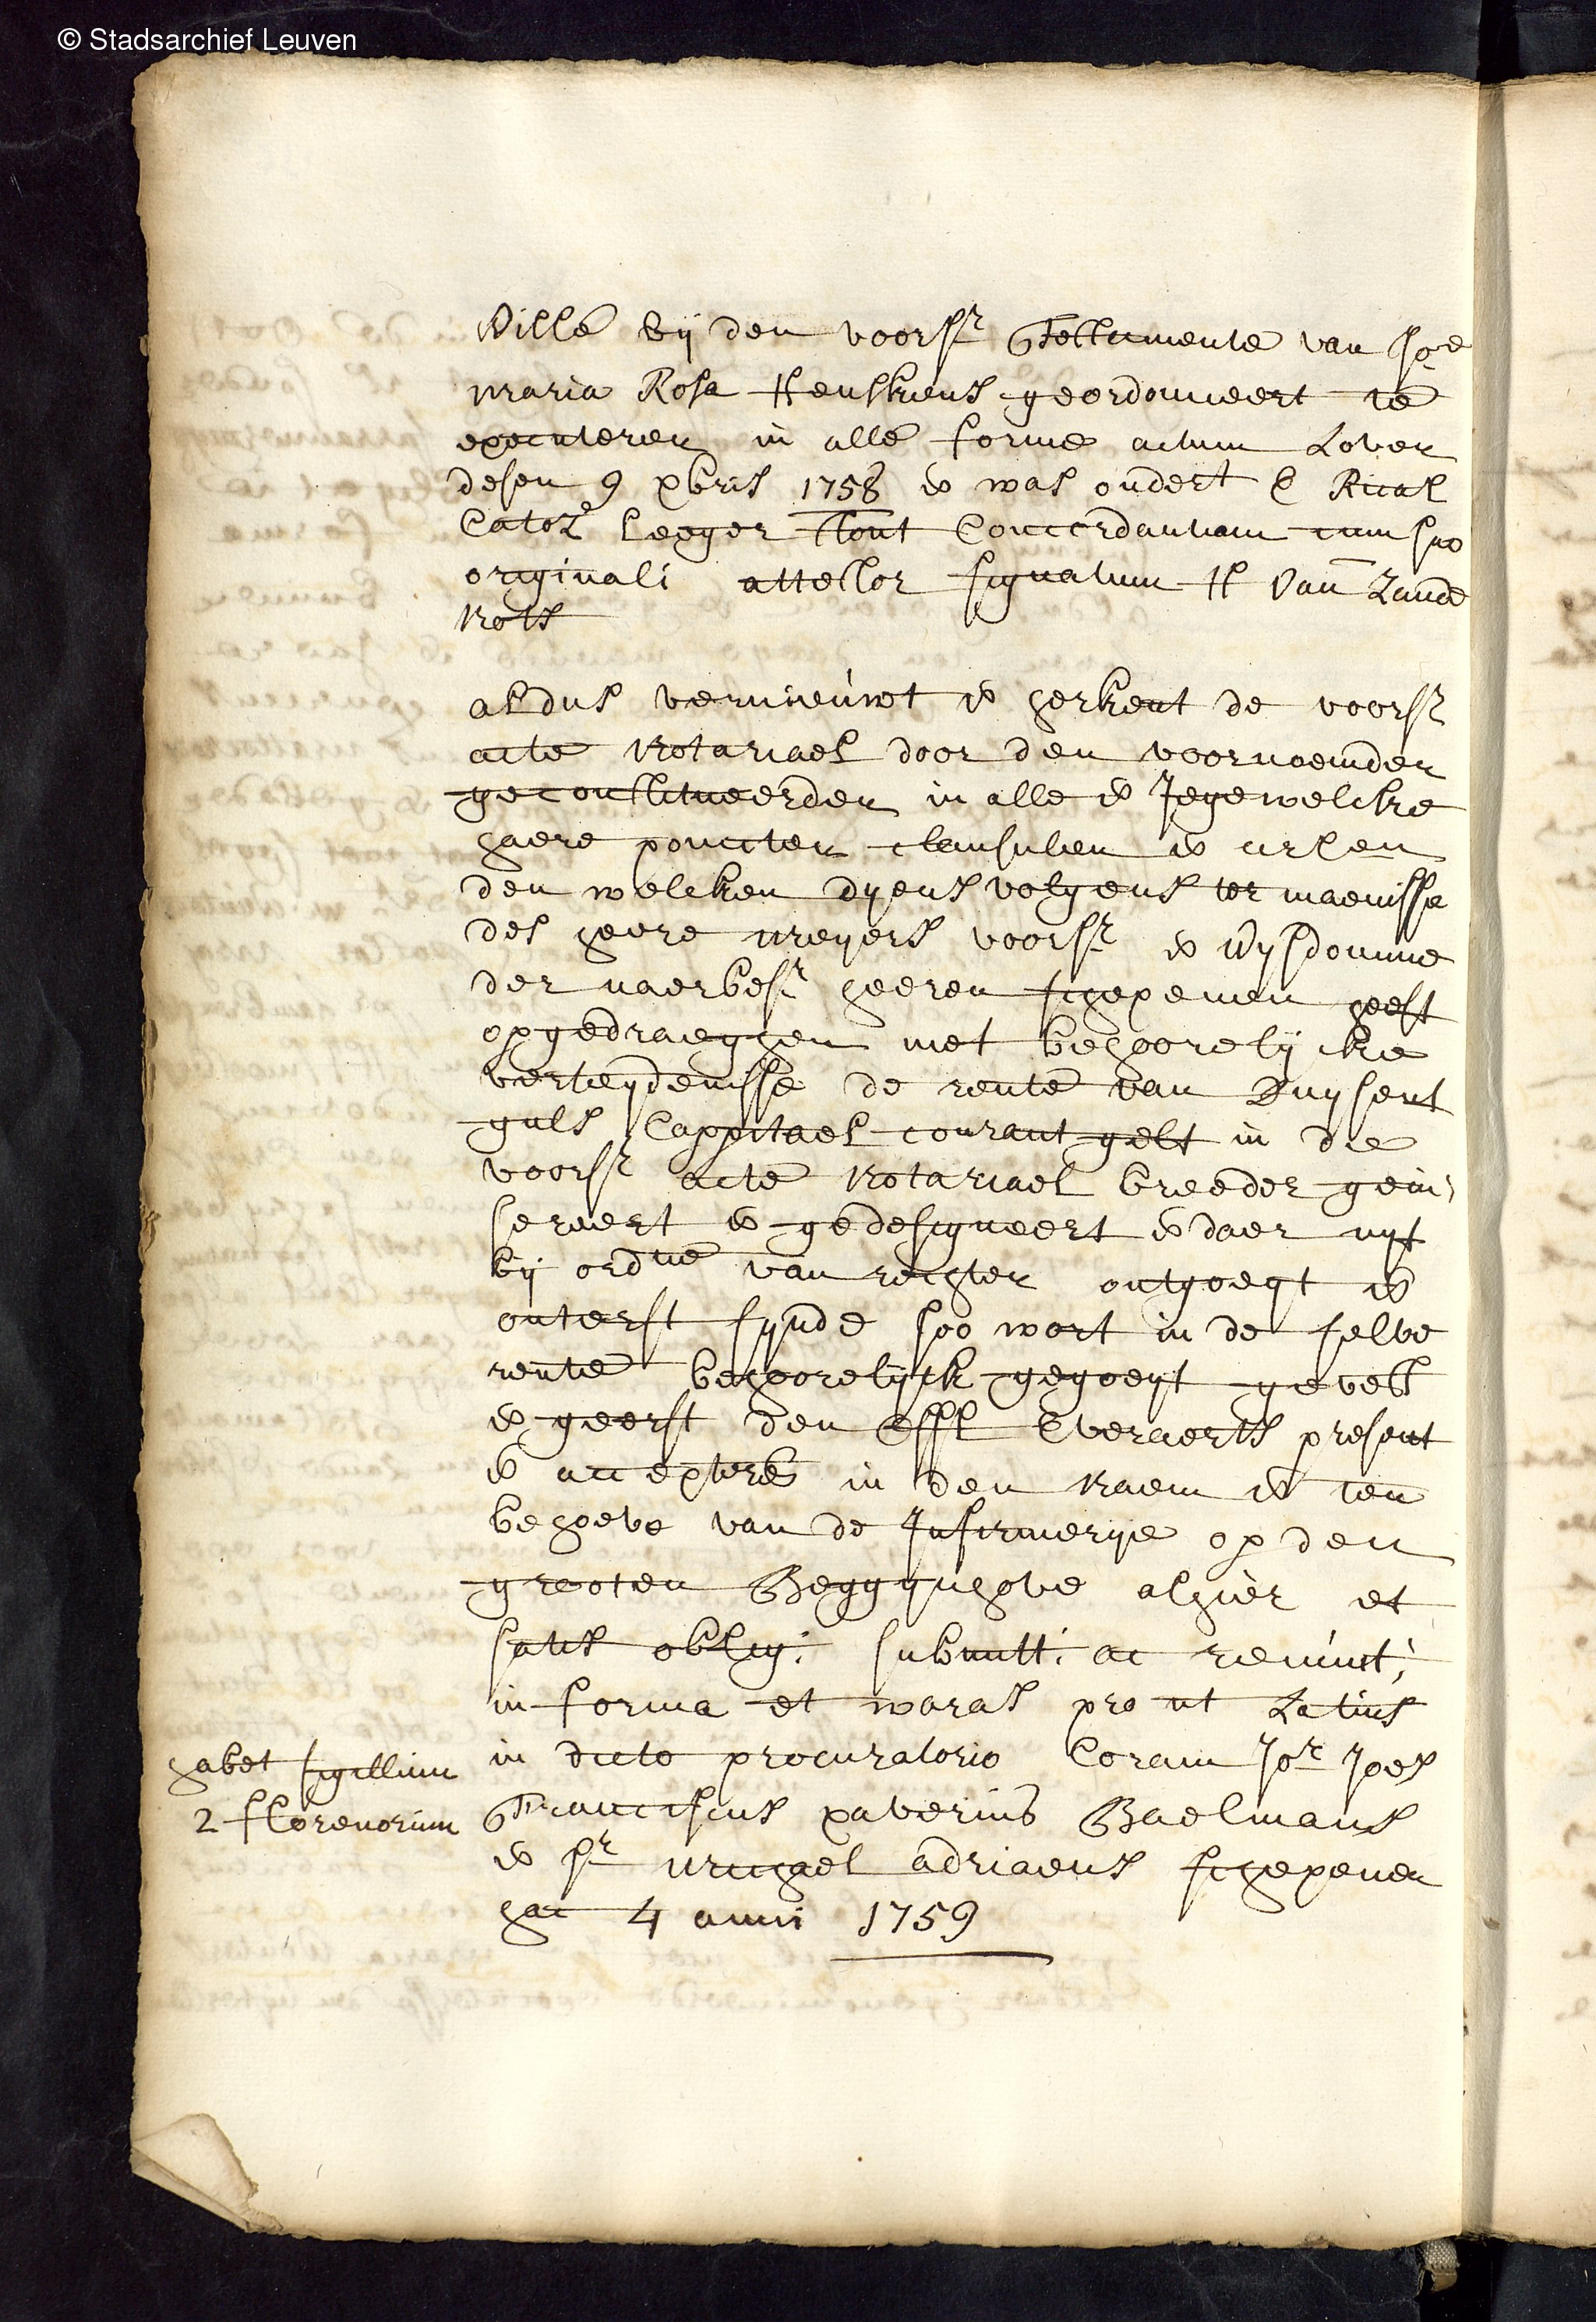 © Stadsarchief Leuven
Wille bij den voorsr Testamente van Joe
maria Rosa Henskens geordonneert te
executeren in alle forme actum Loven
desen 9 xbris 1758 et was ondert C
leeger stont Concordantiam cum suo
originali attestor signatum H Van Zande
Nots
aldus vernieuwt et herkent de voorsr
acte Notariael door den voornoemden
geconstitueerden in alle et Iegewelcke
haere poincten clausulen et
den welcken dyensvolgens ter maenisse
des heere meyers voorsr et wysdomme
der naerbesr heeren schepenen heeft
opgedraeghen met behoorelijcke
verteydenisse de rente van Duysent
guls Cappitael courant gelt in de
voorsr acte Notariael breeder gein-
sereert et gedesigneert et daer uyt
bij ordne van rechten ontgoeyt et
onterft synde soo wort in de selve
rente behoorelyck gegoeyt gevest
et geerft den Everaerts present
et accepterende in den Naem et ten
behoeve van de Infirmerye op den
grooten Beggynhove alhier et
satis oblig: submitt: ac renunt:
in forma et waras pro ut Latius
in dicto procuratorio Coram Jor Joes
Franciscus xaverius Baelmans
et Sr Michael adriaens schepenen
hac 4 anni 1759
habet sigillum
2 florenorum